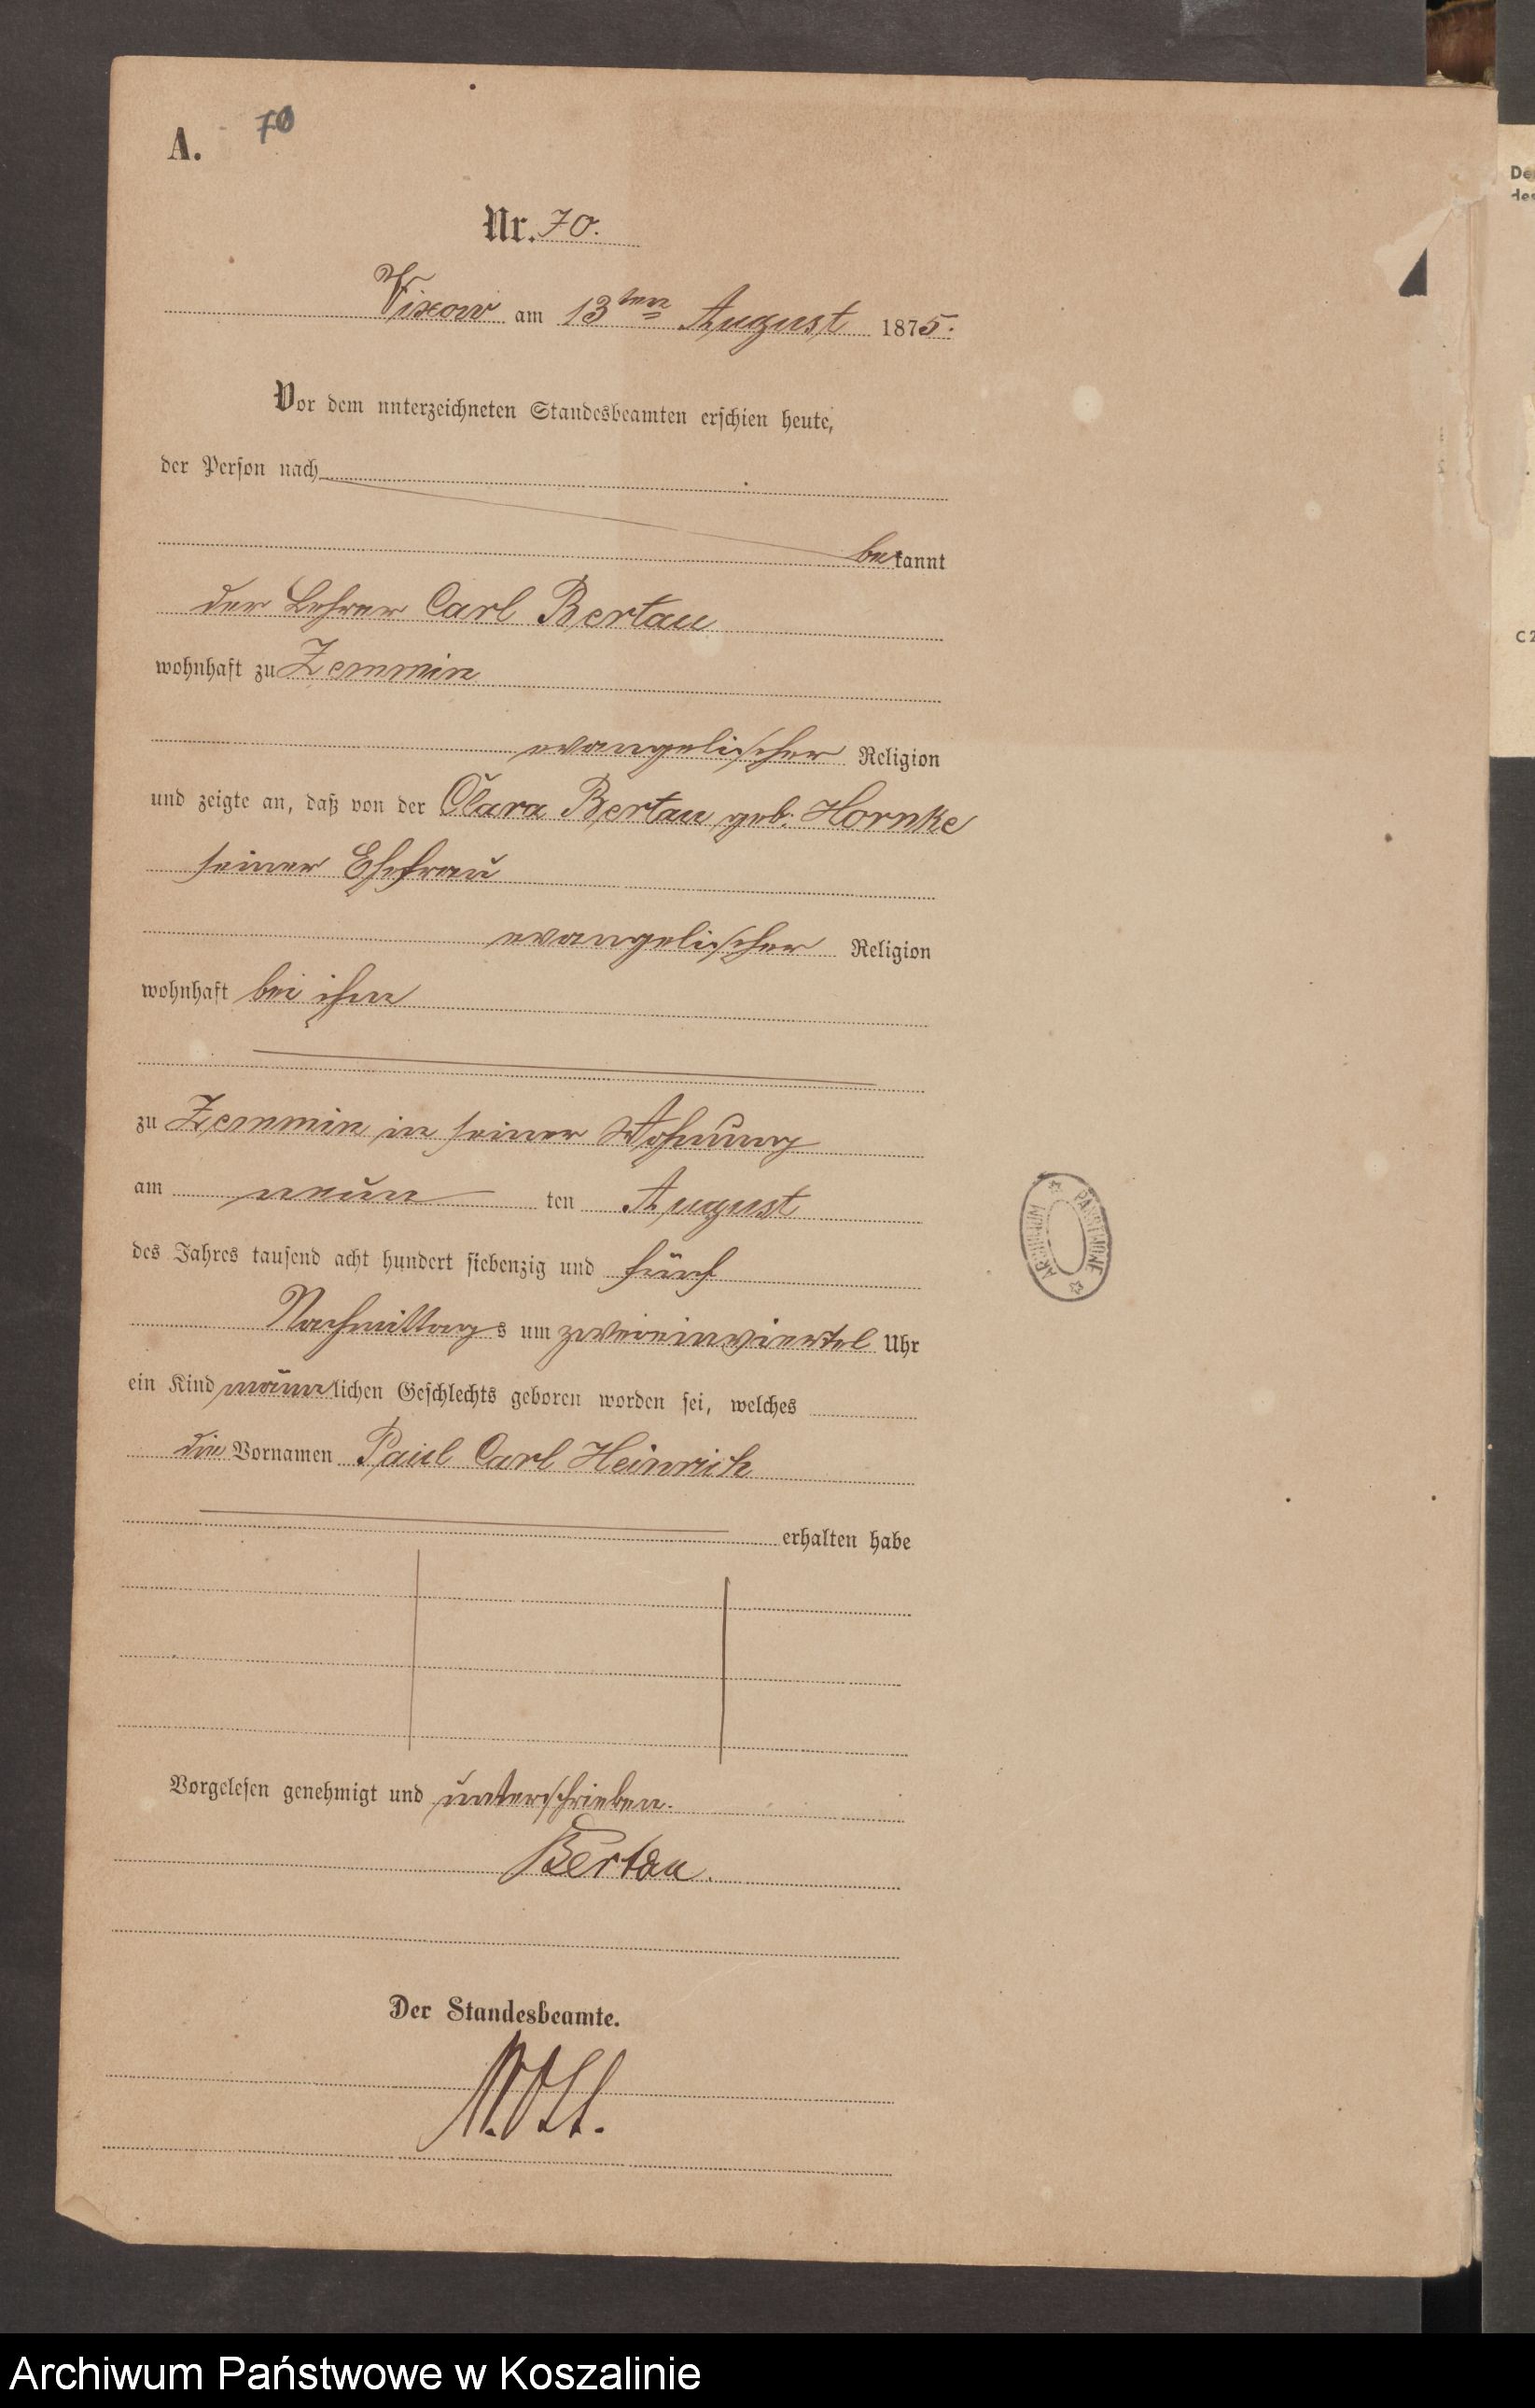 A. 70
Nr. 70.
Vixow am 13ten August 1875.
Vor dem unterzeichneten Standesbeamten erschien heute,
der Person nach
bekannt
der Lehrer Carl Bertau
wohnhaft zu Zemmin
evangelischer Religion
und zeigte an, daß von der Clara Bertau geb. Hornke
seiner Ehefrau
evangelischer Religion
wohnhaft bei ihm
zu Zemmin in seiner Wohnung
am neun ten August
des Jahres tausend acht hundert siebenzig und fünf
Nachmittags um zweieinviertel Uhr
ein Kind männlichen Geschlechts geboren worden sei, welches
die Vornamen Paul Carl Heinrich
erhalten habe
Vorgelesen genehmigt und unterschrieben.
Bertau.
Der Standesbeamte.
ARCHIWUM PAŃSTWOWE
De
des
C2
Archiwum Państwowe w Koszalinie